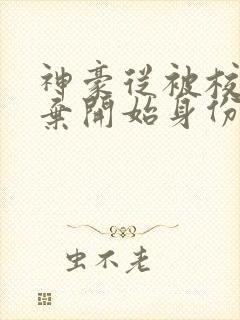 神豪從被校
棄開始身份
虫不老